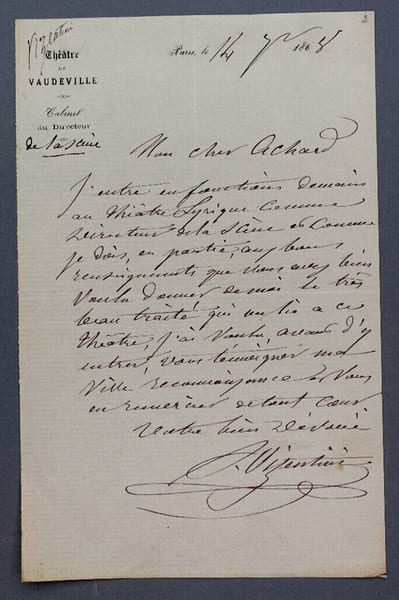 2
Théâtre
DU
VAUDEVILLE
Cabinet
du Directeur
de la scène
Paris, le 14 7bre 1868
Mon cher Achard
J'entre en fonctions demain
au Théâtre Lyrique comme
Directeur de la Scène et comme
je dois, en partie, aux bons
renseignements que vous avez bien
voulu donner de moi le très
beau traité qui me lie à ce
Théâtre, j'ai voulu, avant d'y
entrer, vous témoigner ma
reconnaissance et vous
en remercier de tout coeur
Votre bien dévoué
Vizentini